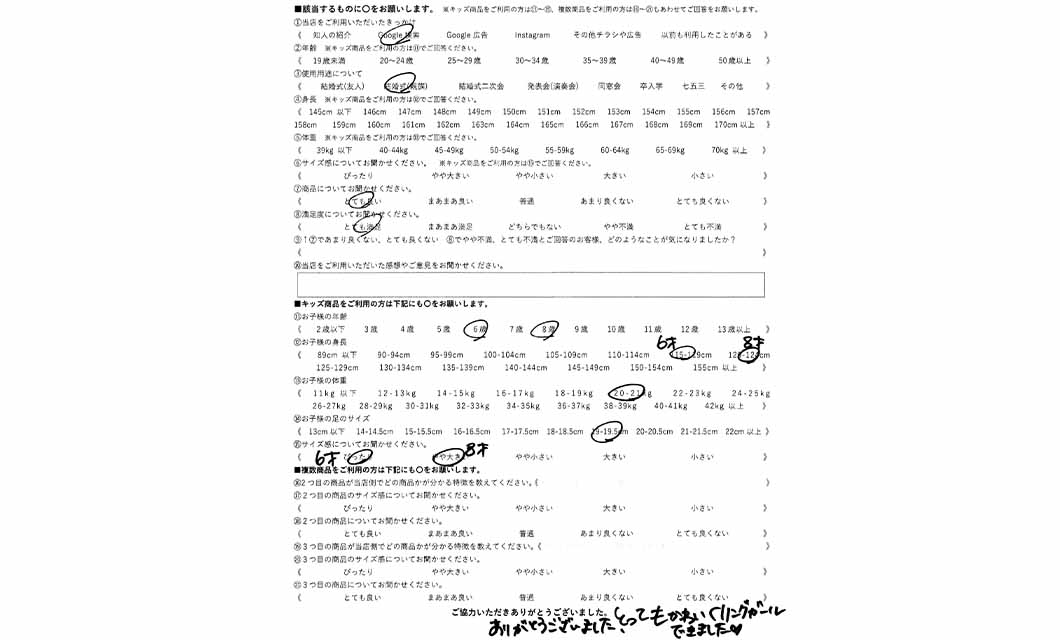 ■該当するものに〇をお願いします。 ※キッズ商品をご利用の方は⑪～⑮、複数商品をご利用の方は⑯～㉑もあわせてご回答をお願いします。
①当店をご利用いただいたきっかけ
《 知人の紹介 Google 検索 Google 広告 Instagram その他チラシや広告 以前も利用したことがある 》
②年齢 ※キッズ商品をご利用の方は⑪でご回答ください。
《 19歳未満 20～24歳 25～29歳 30～34歳 35～39歳 40～49歳 50歳以上 》
③使用用途について
《 結婚式(友人) 結婚式(親族) 結婚式二次会 発表会(演奏会) 同窓会 卒入学 七五三 その他 》
④身長 ※キッズ商品をご利用の方は⑫でご回答ください。
《 145cm 以下 146cm 147cm 148cm 149cm 150cm 151cm 152cm 153cm 154cm 155cm 156cm 157cm
158cm 159cm 160cm 161cm 162cm 163cm 164cm 165cm 166cm 167cm 168cm 169cm 170cm 以上 》
⑤体重 ※キッズ商品をご利用の方は⑬でご回答ください。
《 39kg 以下 40-44kg 45-49kg 50-54kg 55-59kg 60-64kg 65-69kg 70kg 以上 》
⑥サイズ感についてお聞かせください。 ※キッズ商品をご利用の方は⑮でご回答ください。
《 ぴったり やや大きい やや小さい 大きい 小さい 》
⑦商品についてお聞かせください。
《 とても良い まあまあ良い 普通 あまり良くない とても良くない 》
⑧満足度についてお聞かせください。
《 とても満足 まあまあ満足 どちらでもない やや不満 とても不満 》
⑨↑⑦であまり良くない、とても良くない ⑧でやや不満、とても不満とご回答のお客様、どのようなことが気になりましたか？
《 》
⑩当店をご利用いただいた感想やご意見をお聞かせください。
■キッズ商品をご利用の方は下記にも〇をお願いします。
⑪お子様の年齢
《 2歳以下 3歳 4歳 5歳 6歳 7歳 8歳 9歳 10歳 11歳 12歳 13歳以上 》
⑫お子様の身長 6才 8才
《 89cm 以下 90-94cm 95-99cm 100-104cm 105-109cm 110-114cm 115-119cm 120-124cm
125-129cm 130-134cm 135-139cm 140-144cm 145-149cm 150-154cm 155cm 以上 》
⑬お子様の体重
《 11kg 以下 12-13kg 14-15kg 16-17kg 18-19kg 20-21kg 22-23kg 24-25kg
26-27kg 28-29kg 30-31kg 32-33kg 34-35kg 36-37kg 38-39kg 40-41kg 42kg 以上 》
⑭お子様の足のサイズ
《 13cm以下 14-14.5cm 15-15.5cm 16-16.5cm 17-17.5cm 18-18.5cm 19-19.5cm 20-20.5cm 21-21.5cm 22cm以上 》
⑮サイズ感についてお聞かせください。
《 6才 ぴったり やや大きい 8才 やや小さい 大きい 小さい 》
■複数商品をご利用の方は下記にも〇をお願いします。
⑯2つ目の商品が当店側でどの商品かが分かる特徴を教えてください。《 》
⑰2つ目の商品のサイズ感についてお聞かせください。
《 ぴったり やや大きい やや小さい 大きい 小さい 》
⑱2つ目の商品についてお聞かせください。
《 とても良い まあまあ良い 普通 あまり良くない とても良くない 》
⑲3つ目の商品が当店側でどの商品かが分かる特徴を教えてください。《 》
⑳3つ目の商品のサイズ感についてお聞かせください。
《 ぴったり やや大きい やや小さい 大きい 小さい 》
㉑3つ目の商品についてお聞かせください。
《 とても良い まあまあ良い 普通 あまり良くない とても良くない 》
ご協力いただきありがとうございました。
ありがとうございました とってもかわいくリングガール
できました♡